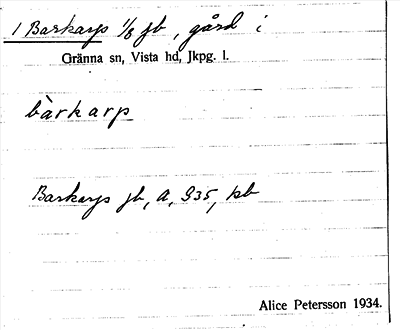 1 Barkarp 1/8 jb, gård i
Gränna sn, Vista hd, Jkpg. l.
bàrkarp
Barkarp jb, A, 935, kb
Alice Petersson 1934.